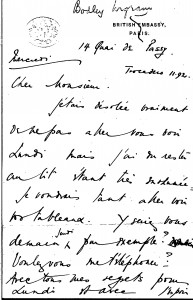 BRITISH EMBASSY,
PARIS.
14 Quai de Passy
Mercredi
Cher Monsieur.
j'étais désolée vraiment
de ne pas aller vous voir
Lundi mais j'ai dû rester
au lit étant très
Je voudrais tant aller voir
vos tableaux. Y serez vous
demain, par exemple?
Voulez vous me téléphoner?
Avec tous mes regrets pour
Lundi et avec